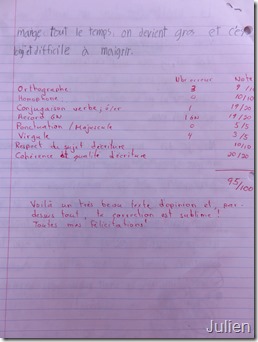 mange tout le temps, on devient gros et c'est
difficile à maigrir.
Nbr erreur Note
Orthographe 3 7/10
Homophone 0 10/10
Conjugaison verbe, é/er 1 19/20
Accord GN 1 GN 19/20
Ponctuation / Majuscule 0 5/5
Virgule 4 3/5
Respect du sujet d'écriture 10/10
Cohérence et qualité d'écriture 20/20
95/100
Voilà un très beau texte d'opinion et, par-
dessus tout, la correction est sublime!
Toutes mes félicitations!
Julien